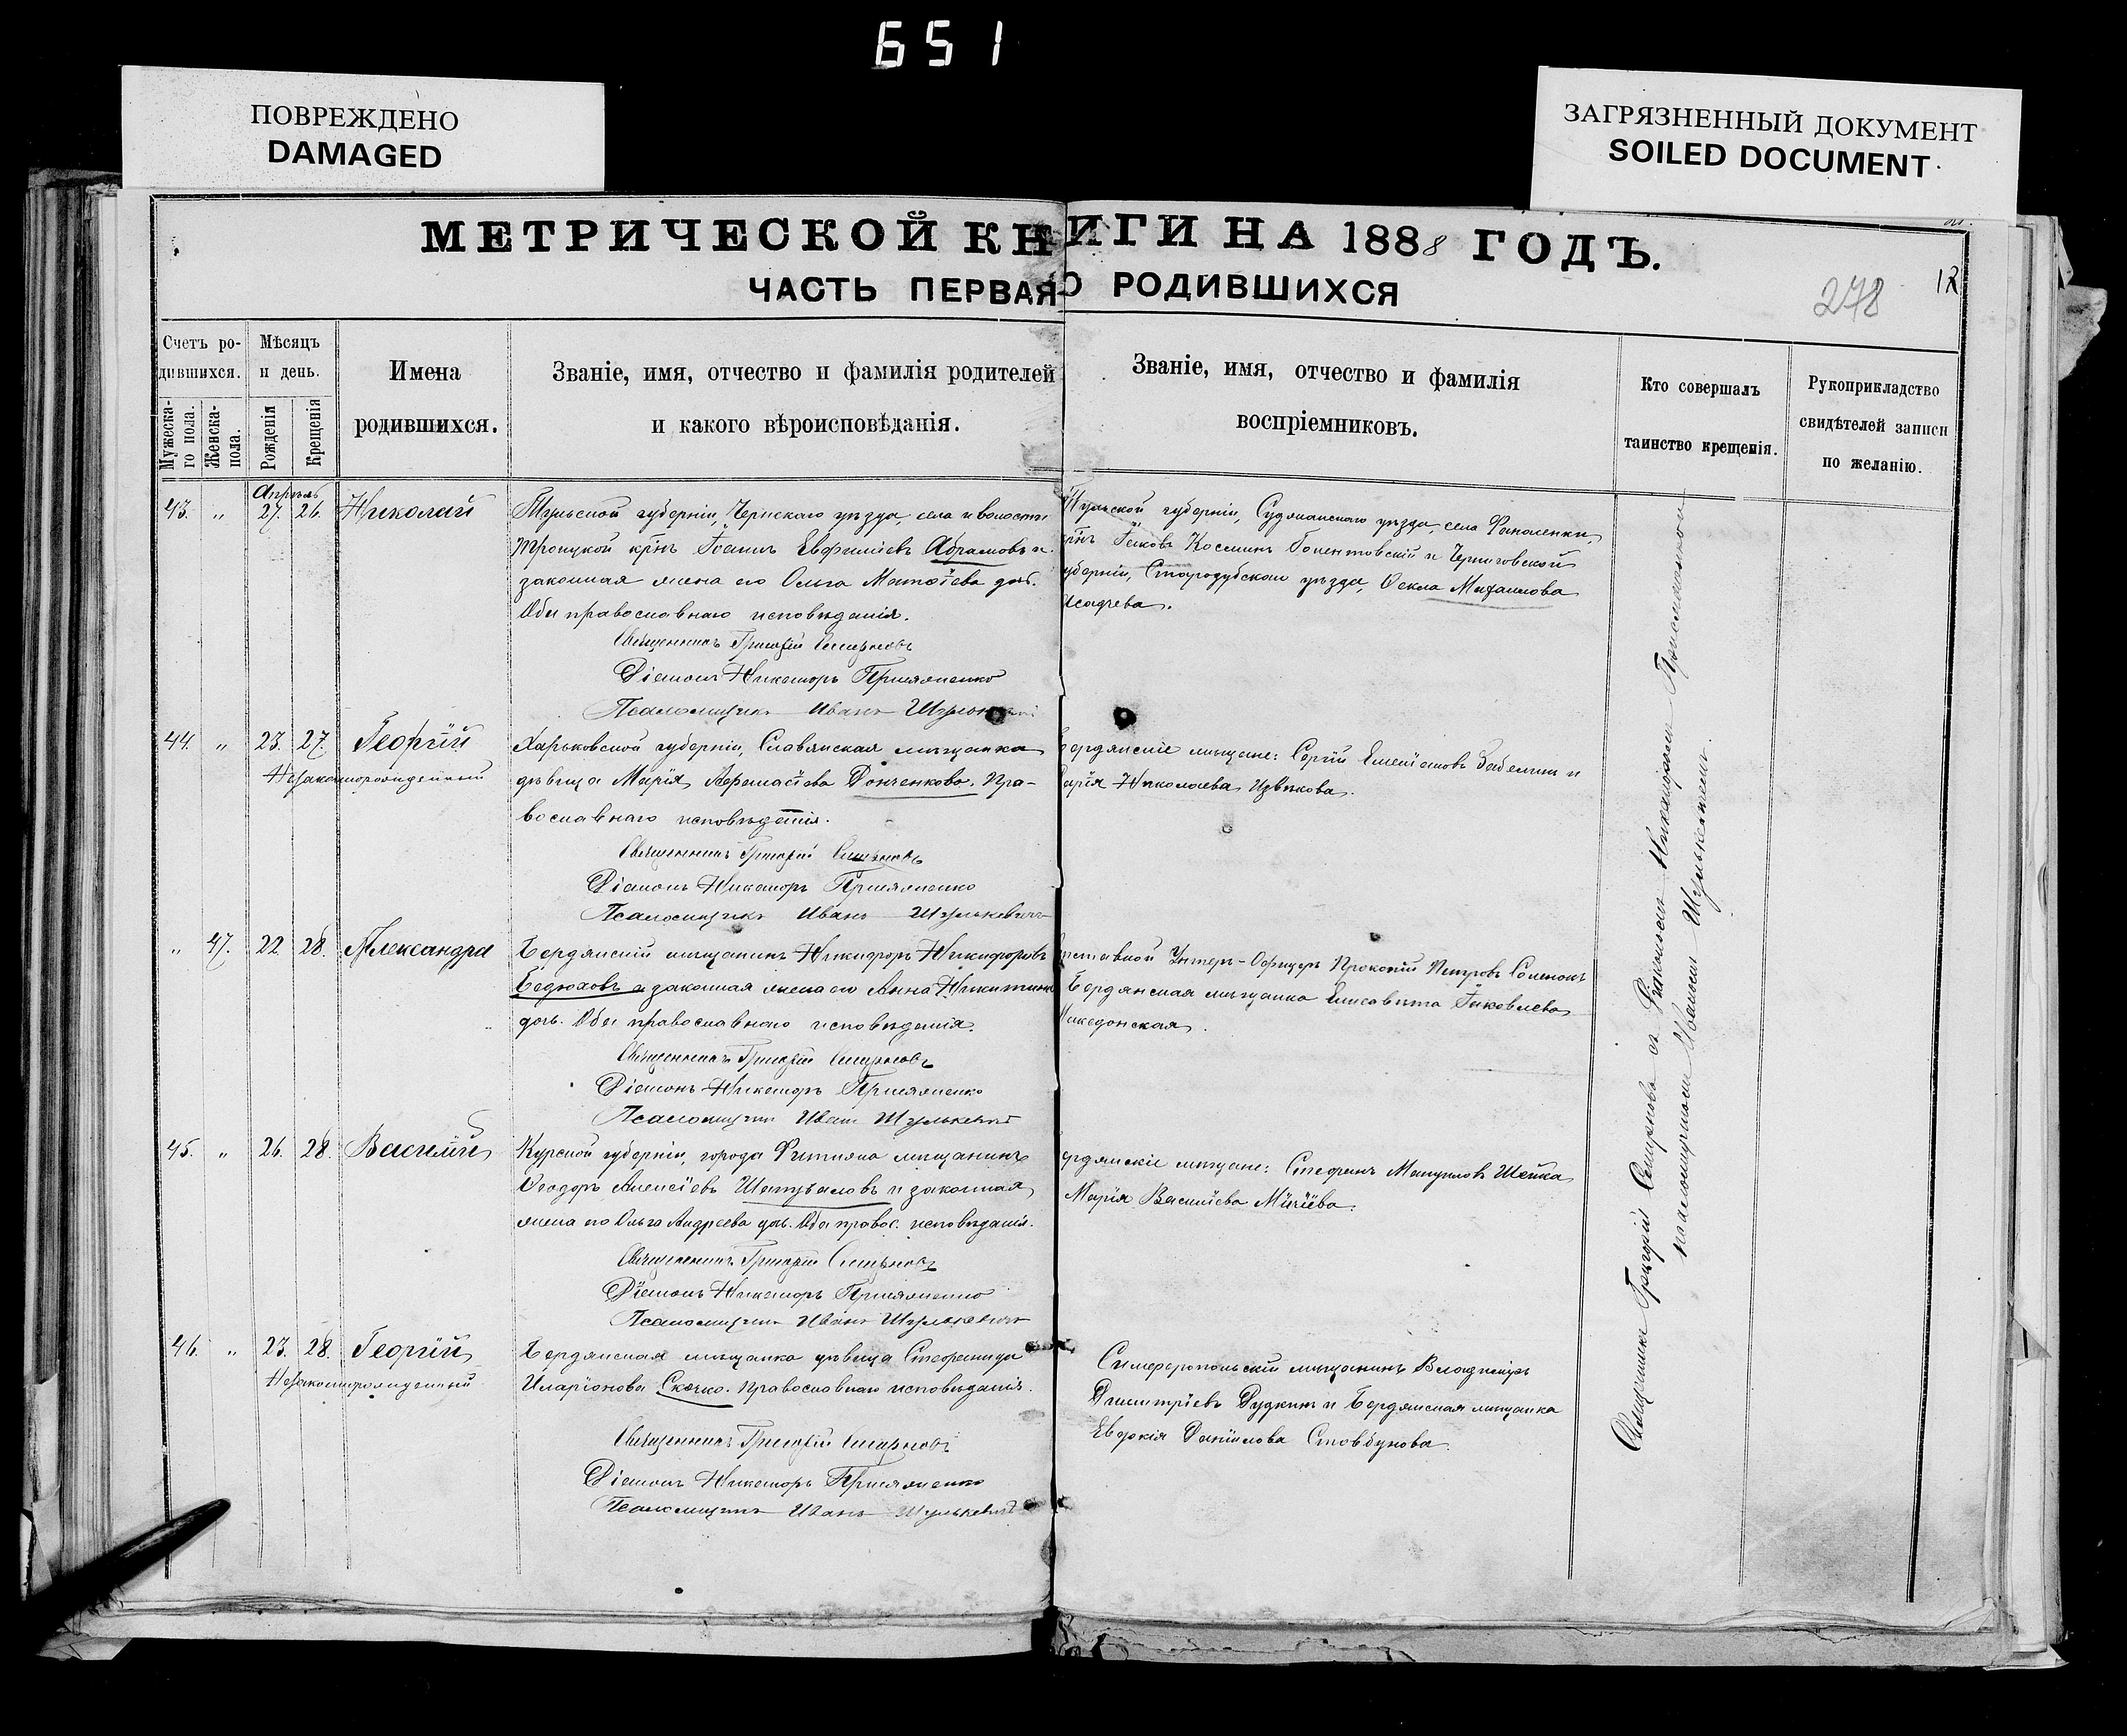 651
ПОВРЕЖДЕНО
DAMAGED
ЗАГРЯЗНЕННЫЙ ДОКУМЕНТ
SOILED DOCUMENT
МЕТРИЧЕСКОЙ КНИГИ НА 1888 ГОДЪ.
ЧАСТЬ ПЕРВАЯ О РОДИВШИХСЯ
278
12
Счетъ ро-
дившихся.
Мужеска-
го пола.
Женска-
пола.
Мѣсяцъ
и день.
Рожденія
Крещенія
Имена
родившихся.
Званіе, имя, отчество и фамилія родителей
и какого вѣроисповѣданія.
Званіе, имя, отчество и фамилія
воспріемниковъ.
Кто совершалъ
таинство крещенія.
Рукоприкладство
свидѣтелей записи
по желанію.
Апрѣль
43. " 21. 26. Николай
Тульской губерніи, Чернскаго уѣзда, села и волости
Троицкой Іоаннъ Евфиміевъ Абрамовъ и
законная жена его Ольга Матѳіева
Оба православнаго исповѣданія.
Священникъ Григорій Смирновъ
Діаконъ Никаноръ Присяженко
Псаломщикъ Иванъ
губерніи, уѣзда, села
Іаковъ Косминъ и Черниговской
губерніи, Стародубскаго уѣзда, Ѳекла Михаилова
44. " 23. 27. Георгій
Незаконнорожденный
Харьковской губерніи, Славянская мѣщанка
дѣвица Марія Аѳанасіева Донченкова. Пра-
вославнаго исповѣданія.
Священникъ Григорій Смирновъ
Діаконъ Никаноръ Присяженко
Псаломщикъ Иванъ Шулькевичъ
мѣщане: Сергій Емеліановъ Забелинъ и
Николаева
" 47. 22. 28. Александра
Бердянскій мѣщанинъ Никифоръ Никифоровъ
Бедюховъ и законная жена его Анна Никитина
Оба православнаго исповѣданія.
Священникъ Григорій Смирновъ
Діаконъ Никаноръ Присяженко
Псаломщикъ Иванъ Шулькевичъ
Унтеръ-Офицеръ Прокопій Петровъ
Бердянская мѣщанка Елисавета Іаковлева
45. " 26. 28. Василій
Курской губерніи, города мѣщанинъ
Ѳеодоръ Алексіевъ Шаповаловъ и законная
жена его Ольга Андреева Оба правос. исповѣданія.
Священникъ Григорій Смирновъ
Діаконъ Никаноръ Присяженко
Псаломщикъ Иванъ Шулькевичъ
мѣщане: Стефанъ Мануиловъ Шейка
Марія Василіева
46. " 23. 28. Георгій
Незаконнорожденный
Бердянская мѣщанка дѣвица Стефанида
Иларіонова Скочко. Православнаго исповѣданія.
Священникъ Григорій Смирновъ
Діаконъ Никаноръ Присяженко
Псаломщикъ Иванъ Шулькевичъ
Симферопольскій мѣщанинъ Владиміръ
Димитріевъ Дудкинъ и Бердянская мѣщанка
Евдокія Даніилова Столбунова.
Священникъ Григорій Смирновъ съ Діакономъ Никаноромъ Присяженко
псаломщикомъ Иваномъ Шулькевичемъ.